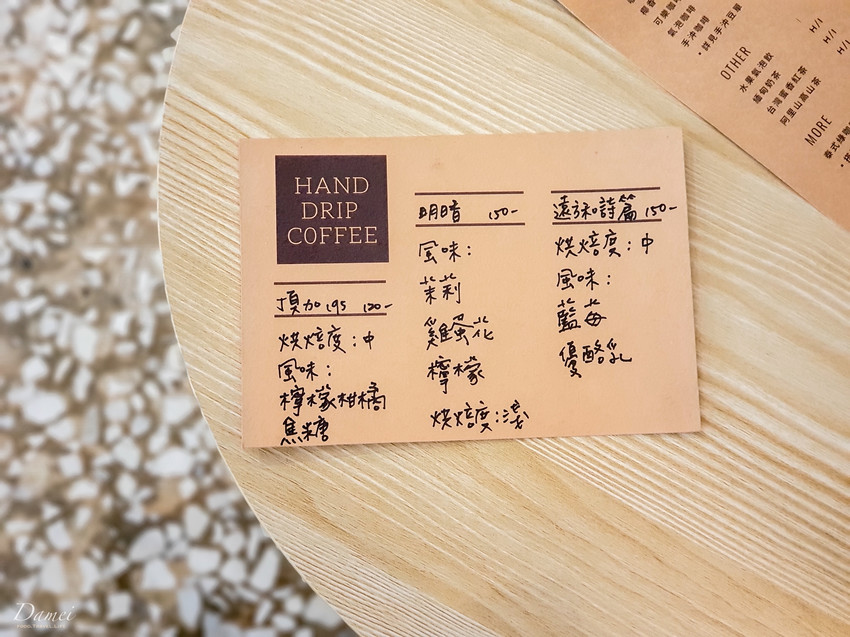 HAND
DRIP
COFFEE
頂加 195 120-
烘焙度：中
風味：
檸檬柑橘
焦糖
明暗 150-
風味：
茉莉
雞蛋花
檸檬
烘焙度：淺
遠方和詩篇 150-
烘焙度：中
風味：
藍莓
優酪乳
可樂咖啡
氣泡咖啡 H/I
手沖咖啡 H/I
•詳見手沖豆單 H/I
OTHER
水果氣泡飲
緬甸奶茶
台灣蜜香紅茶
阿里山高山茶
MORE
Damei